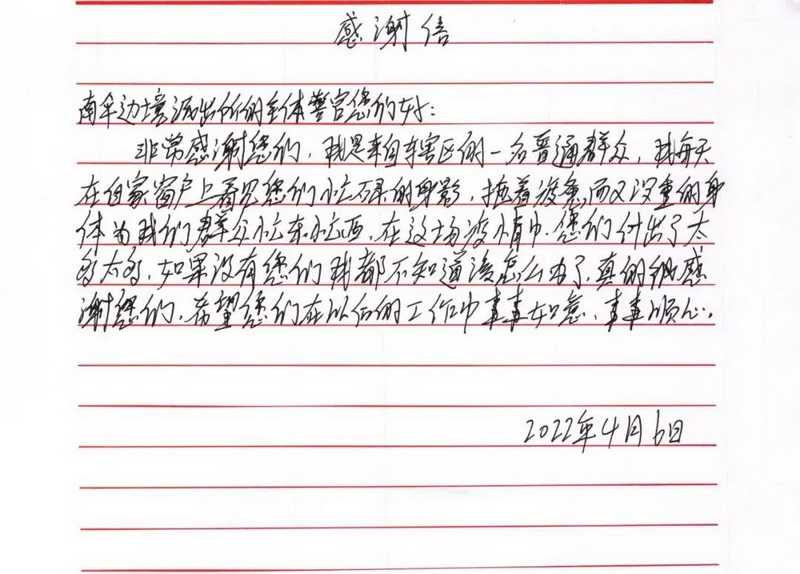 感谢信
南伞边境派出所的全体警官您们好：
非常感谢您们，我是来自辖区的一名普通群众，我每天
在自家窗户上看见您们忙碌的身影，拖着疲惫而又沉重的身
体为我们群众忙东忙西，在这场疫情中，您们付出了太
多太多，如果没有您们我都不知道该怎么办了，真的很感
谢您们，希望您们在以后的工作中事事如意、事事顺心。
2022年4月6日